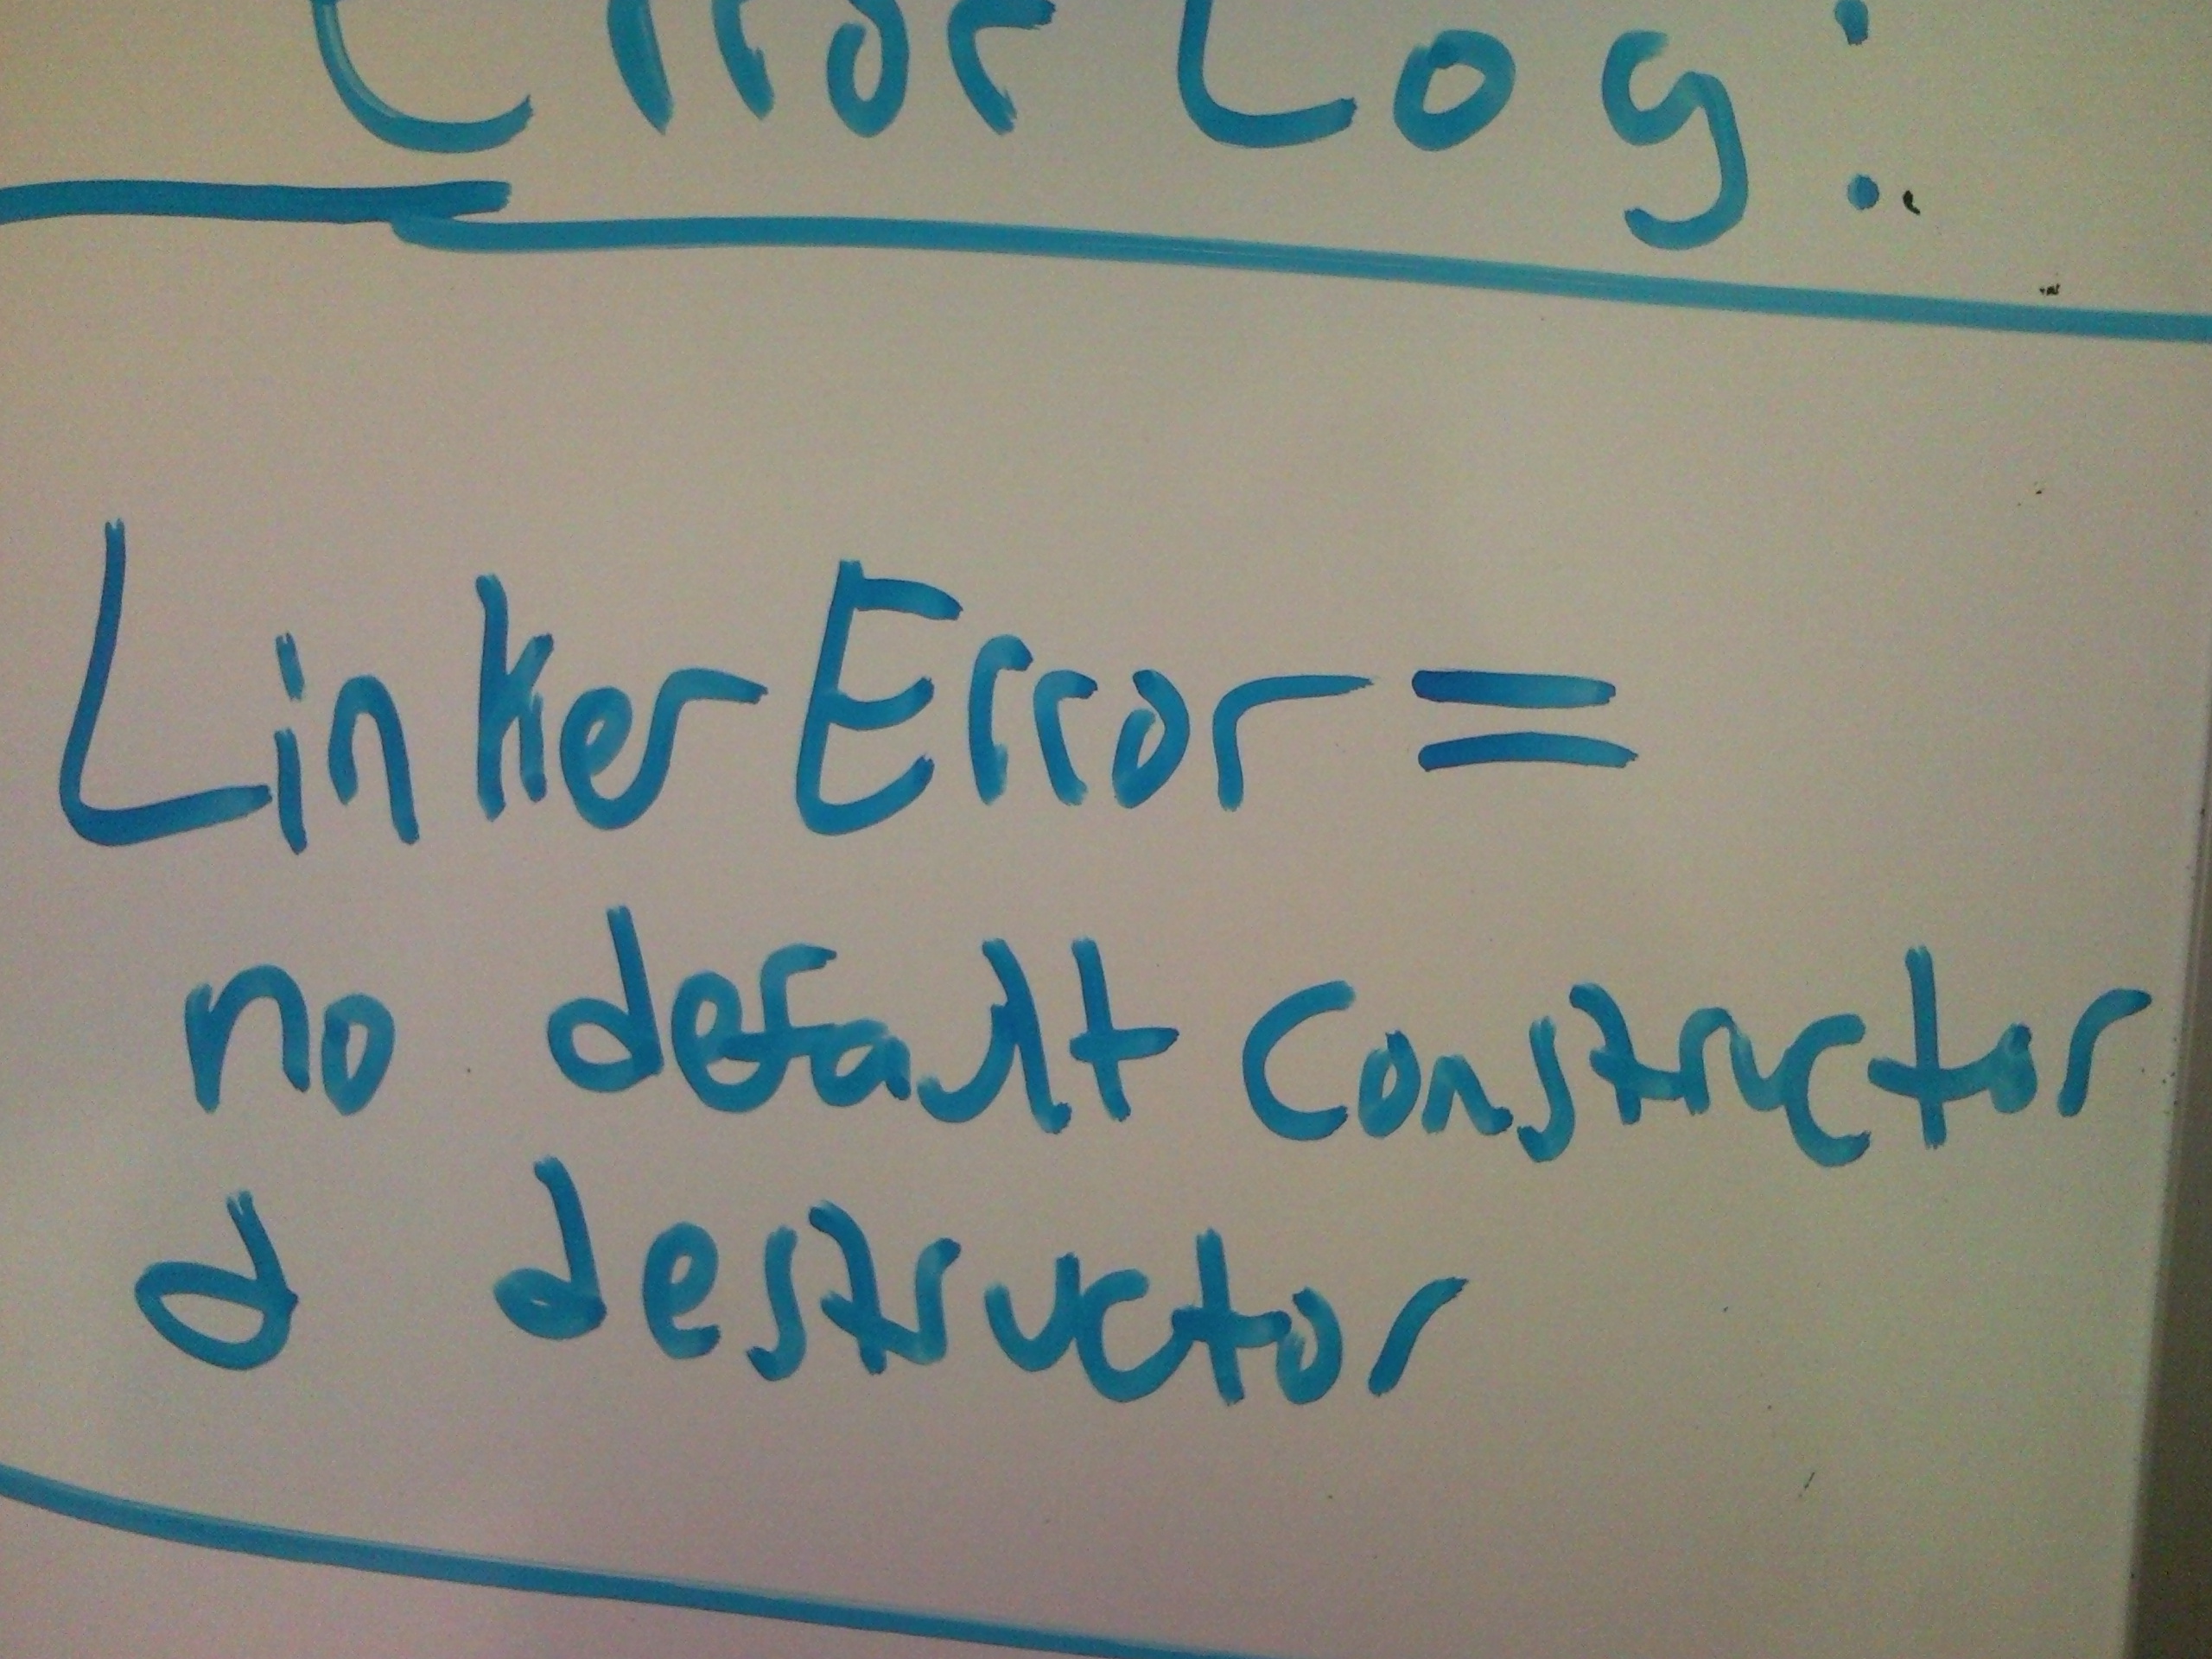 Error Log:
Linker Error =
no default constructor
d destructor